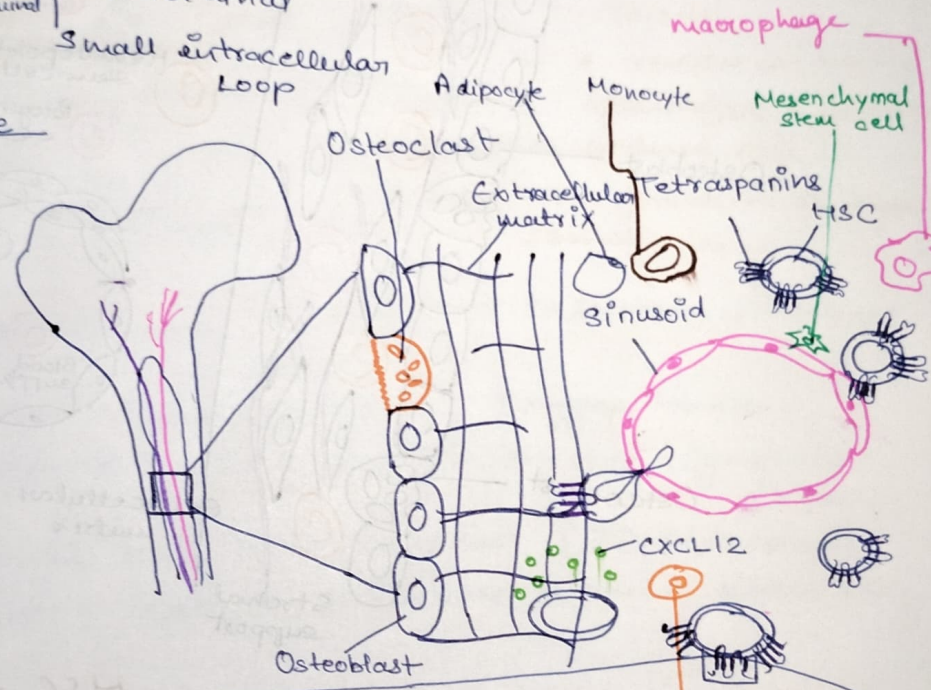 macrophage
Small extracellular
Loop
Adipocyte
Monocyte
Mesenchymal
stem cell
Osteoclast
Extracellular
matrix
Tetraspanins
HSC
Sinusoid
CXCL12
Osteoblast